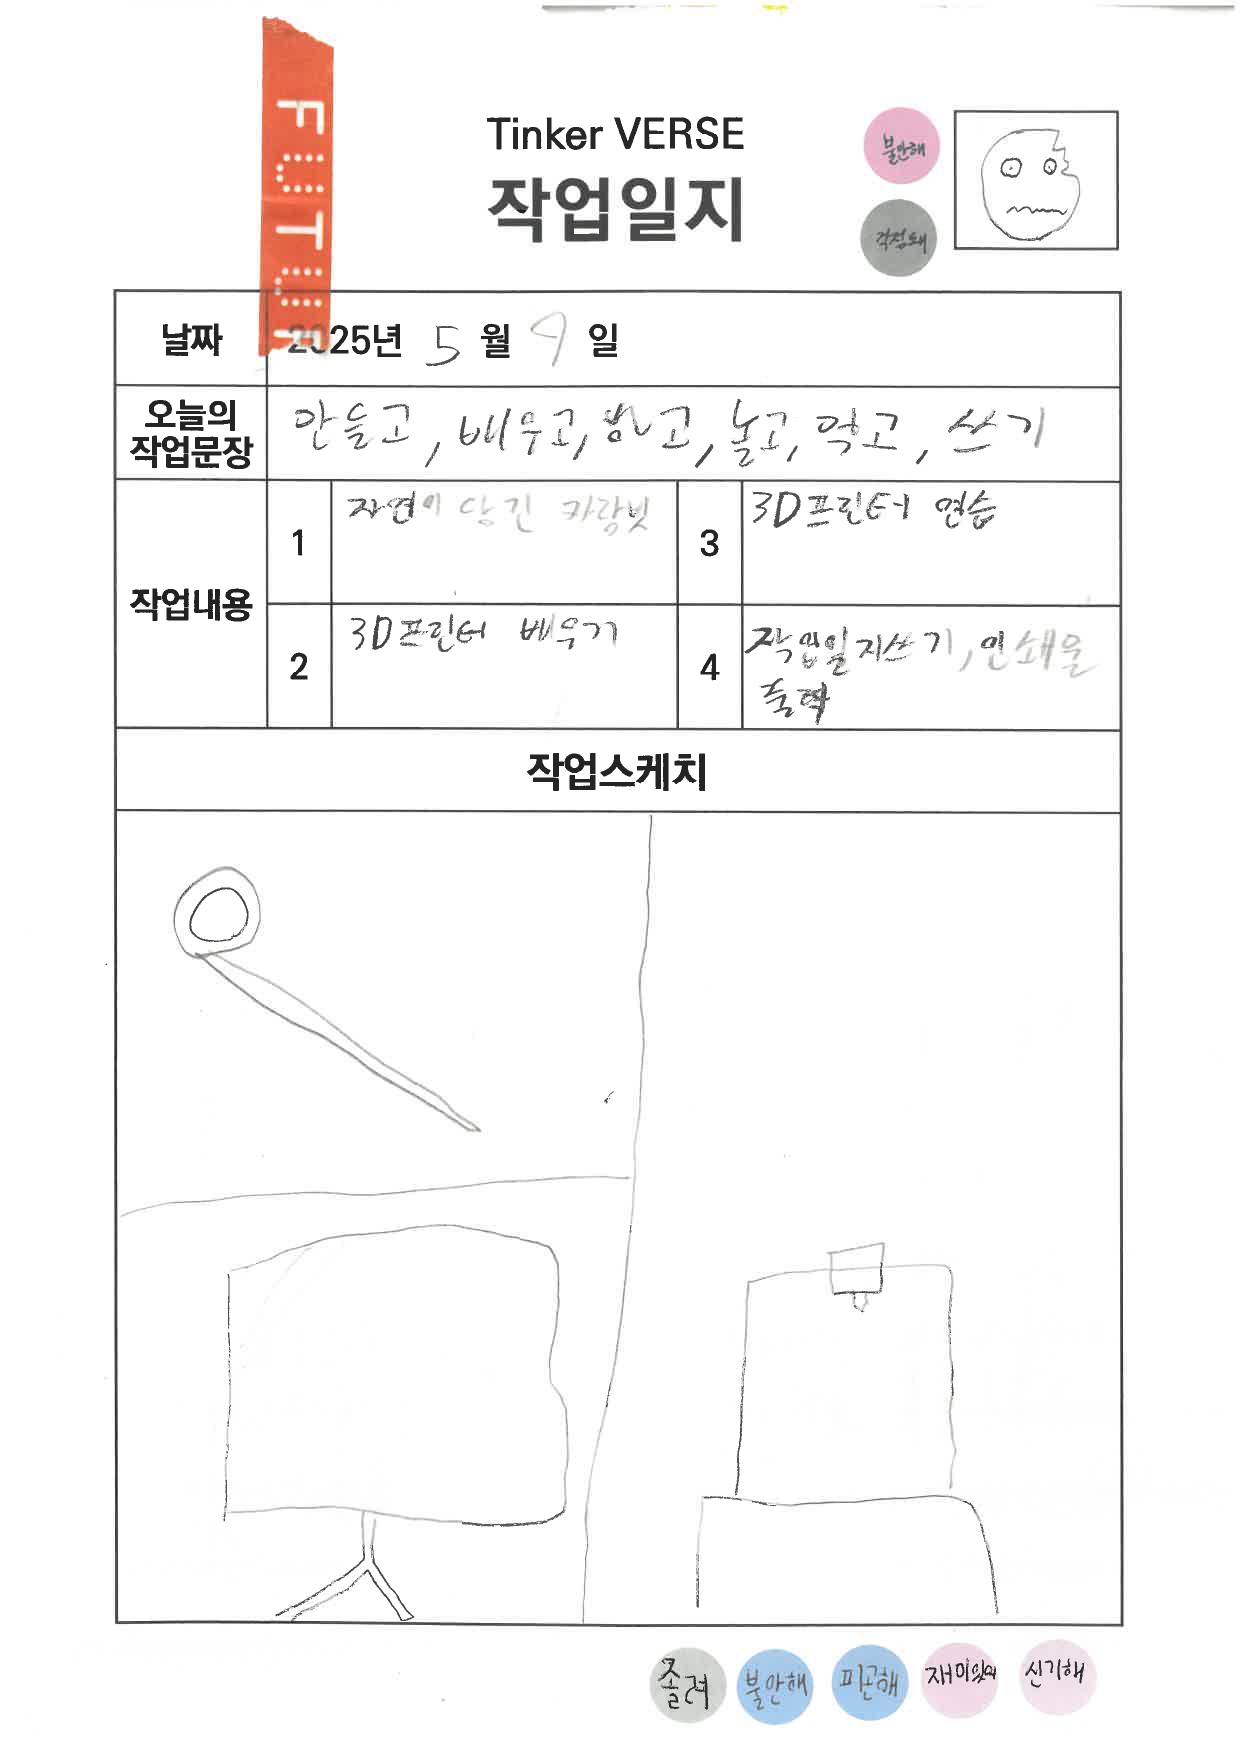 FUTUR
Tinker VERSE
작업일지
불안해
걱정돼
날짜
2025년 5월 9일
오늘의
작업문장
만들고, 배우고, 하고, 놀고, 먹고, 쓰기
작업내용
1
자연이 당긴 카람빗
3
3D프린터 연습
2
3D프린터 배우기
4
작업일지쓰기, 인쇄물
출력
작업스케치
졸려
불안해
피곤해
재미있어
신기해